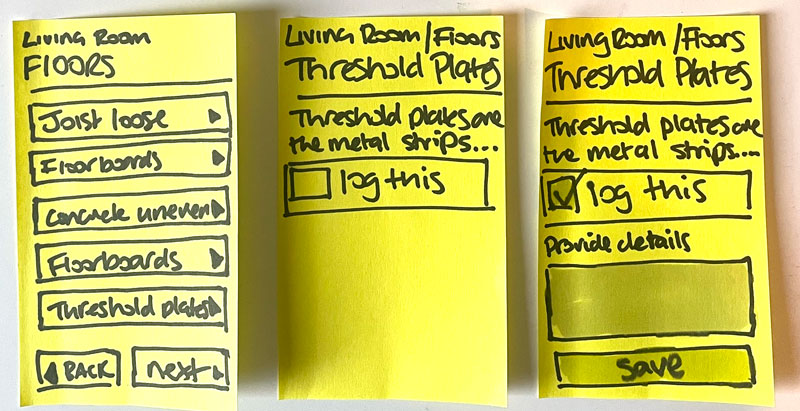 Living Room
FLOORS
Joist loose
Floorboards
Concrete uneven
Floorboards
Threshold plates
BACK
next
Living Room/Floors
Threshold Plates
Threshold plates are
the metal strips...
log this
Living Room/Floors
Threshold Plates
Threshold plates are
the metal strips....
log this
Provide details
save